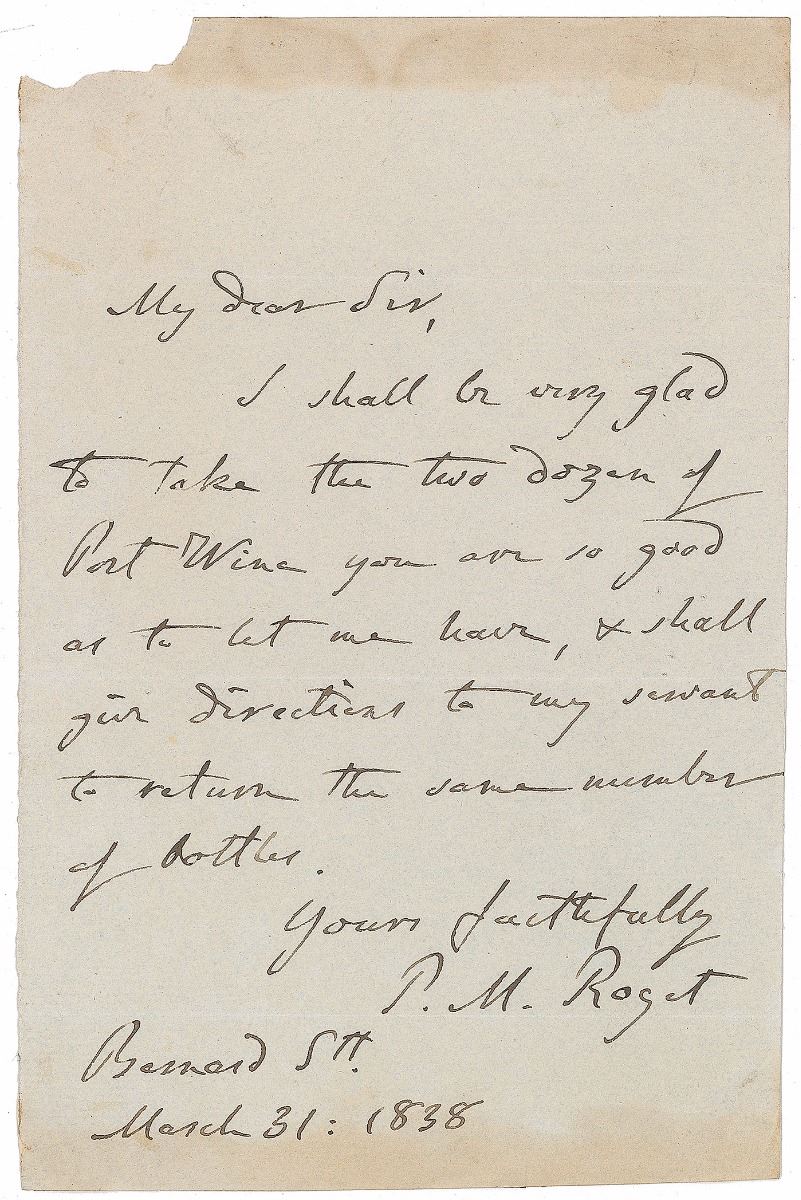 My dear Sir,
I shall be very glad
to take the two dozen of
Port Wine you are so good
as to let me have, & shall
give directions to my servant
to return the same number
of bottles.
Yours faithfully
P. M. Roget
Bernard Stt.
March 31: 1838